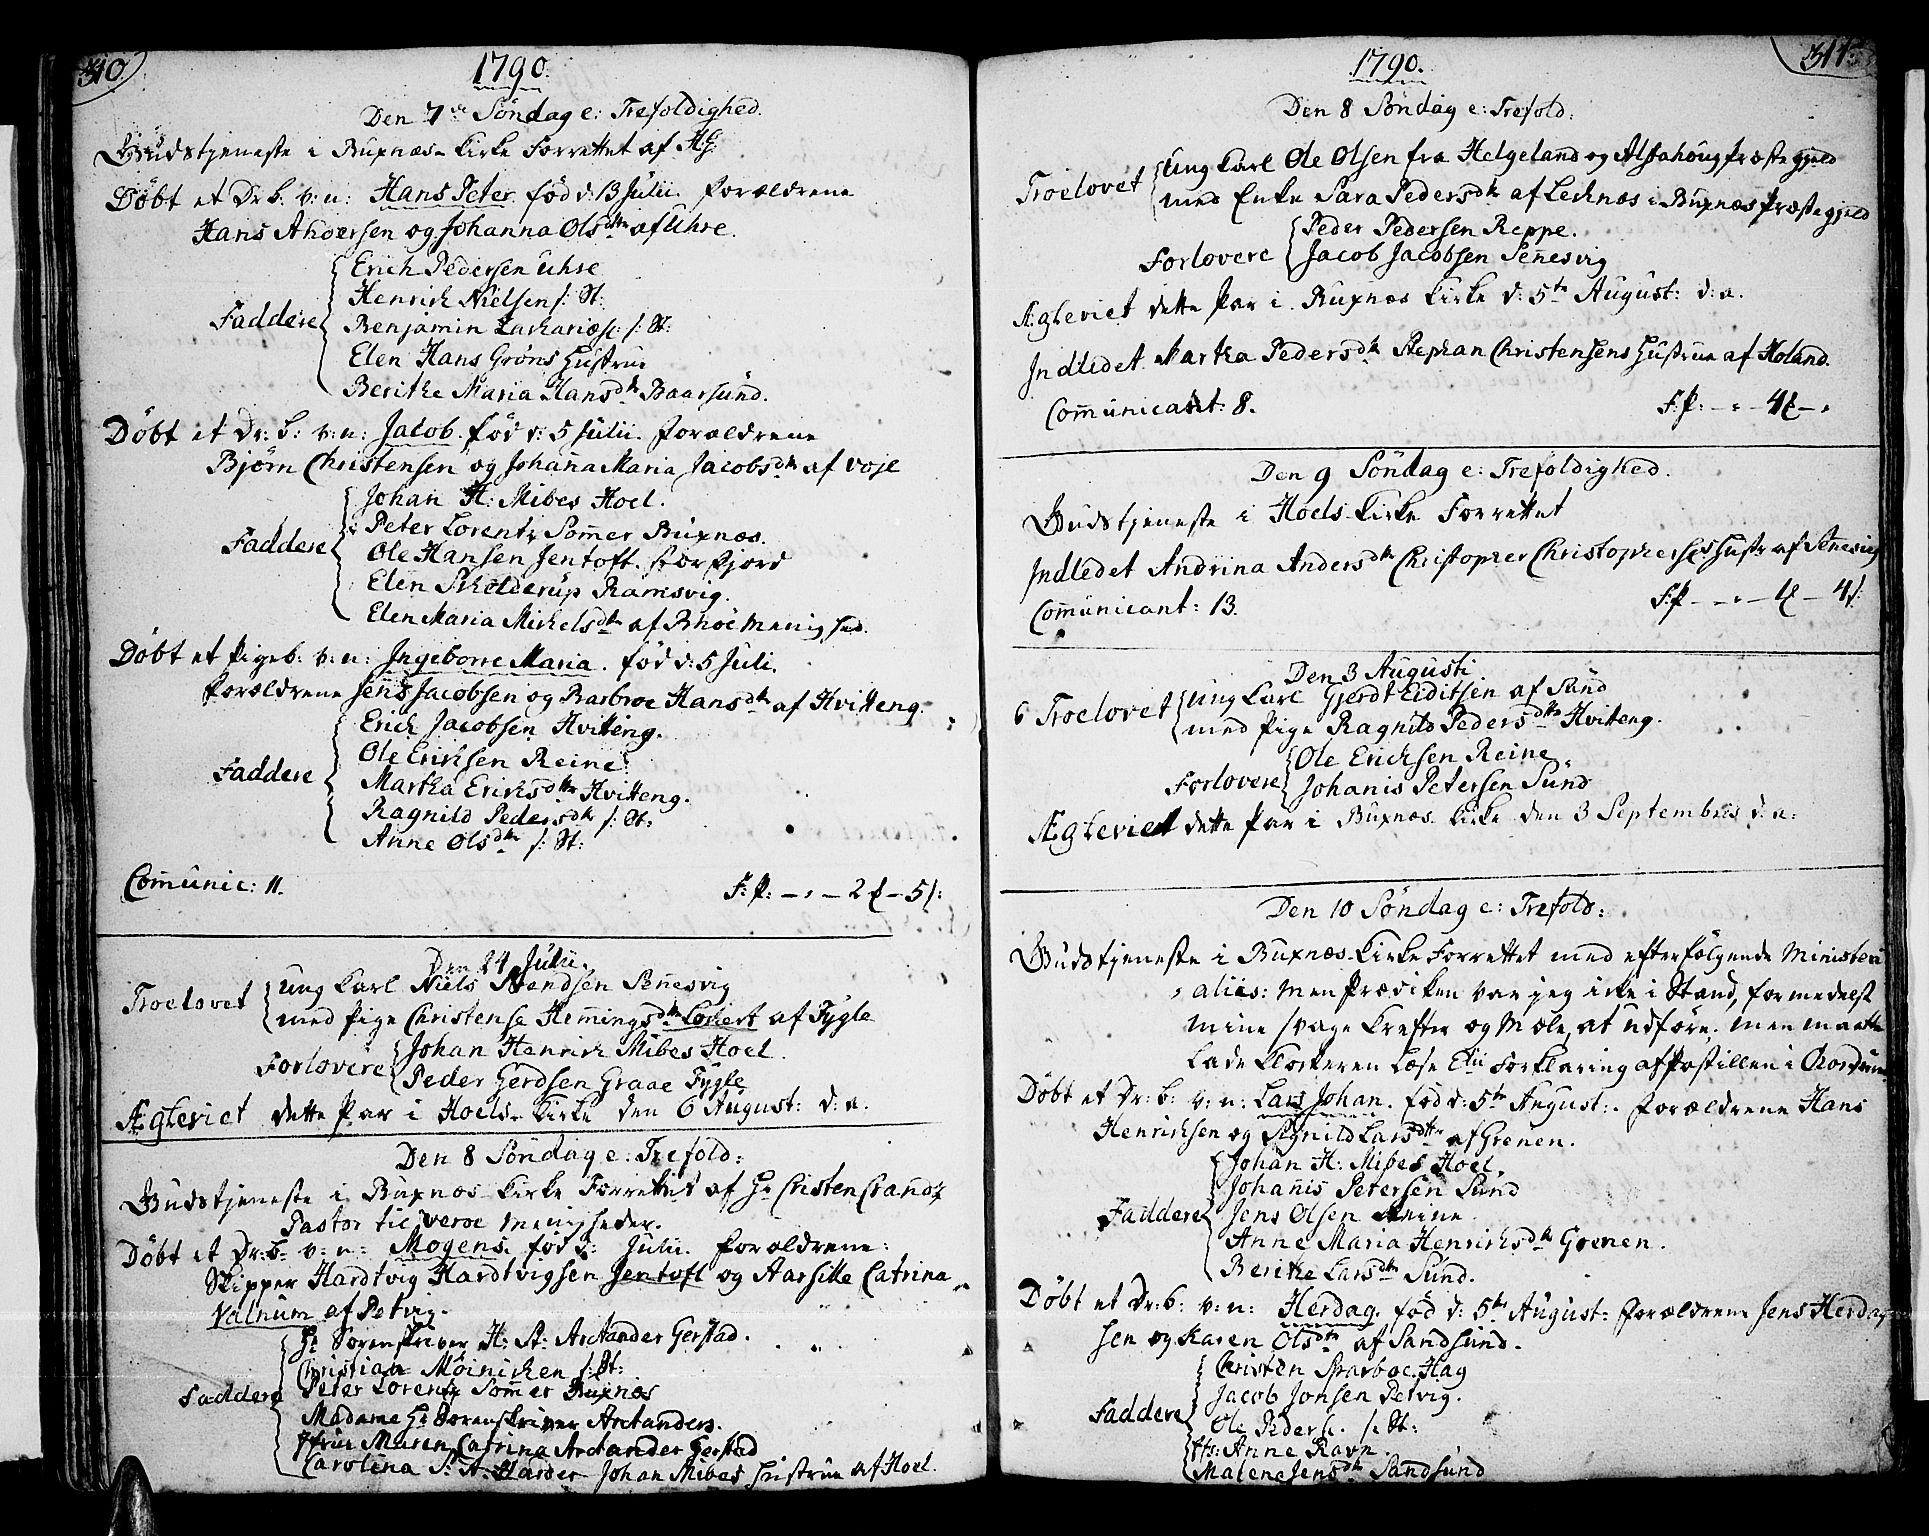 310.
1790.
Den 7de Söndag e: Trefoldighed.
Gudstjeneste i Buxnæs-Kirke Forrettet af H.G:
Döbt et Dr: b. v: n: Hans Peter. föd d: 13 Julii. Forældrene
Hans Andersen og Johanna Olsdttr af Uhre.
Erich Pedersen Uhre
Henrich Nielsen /: St:
Benjamin Zachariæs: /: St:
Faddere
Elen Hans Gröns Hustrue
Berithe Maria Hansdtr Baarsund.
Döbt et Dr: b: v: n: Jacob. föd d: 5 Julii. Forældrene
Björn Christensen og Johanna Maria Jacobsdtr af Voje
Johan H: Mibes Hoel.
Peter Lorentz Sommer Buxnæs.
Faddere
Ole Hansen Jentoft. Storfjord
Elen Skielderup Ramsvig.
Elen Maria Michelsdtr af Bnöe Menighed.
Döbt et Pigeb: v: n: Ingeborre Maria. föd d: 5 Juli.
Forældrene Jens Jacobsen og Barbroe Hansdtr af Hvitteng.
Erich Jacobsen Hvitting.
Ole Erichsen Reine
Faddere
Martha Erichsdttr Hvitteng.
Ragnild Pedersdtr /: St:
Anne Olsdtr /: St:
Comunic: 11.
F: P: – : – 2 – 5 /:
Den 24 Julii.
Troelovet
Ung Karl Niels Svendsen Sennesvig
med Pige Christense Hemmingsdtr Lockert af Fygle
Forlovere
Johan Henrich Mibes Hoel.
Peder Gerdsen Graae Fygle
Ægteviet dette Par i Hoels-Kirke den 6 August: d: a.
Den 8 Söndag e: Trefold:
Gudstjeneste i Buxnæs-Kirke Forrettet af Hr Christen Crantz
Pastor til Veroe Menigheder.
Döbt et Dr: b: v: n: Mogens. föd d: Julii. Forældrene:
Skipper Hardtvig Hardtvigsen Jentoft og Aarsille Catrina
Valnum af Petvig.
Hr Sorenskriver H: A: Arctander Gerstad.
Christian Möinichen /: St:
Faddere
Peter Lorentz Sommer Buxnæs
Madame Hr Sorenskriver Arctanders.
Jfrue Maren Catrina Arctander Gerstad
Carolina S: A: Harder Johan Mibes Hustrue af Hoel.
311.
1790.
Den 8 Söndag e: Trefold:
Troelovet
Ung Karl Ole Olsen fra Helgeland og Alstahoug Præstegjeld
med Enke Sara Pedersdtr af Lechnæs i Buxnæs Præstegjeld
Forlovere
Peder Pedersen Reppe.
Jacob Jacobsen Sennesvig
Ægteviet dette Par i Buxnæs Kirke d: 5te August: d: a.
Indledet Martha Pedersdtr Stephan Christensens Hustrue af Holand.
Communicant: 8.
F: P: – : – 4 – :
Den 9 Söndag e: Trefoldighed.
Gudstjeneste i Hoels-Kirke Forrettet
Indledet Andrina Andersdtr Christopher Christophersens Hustr af Sennesvig
Communicant: 13.
F: P – – : – 1 – 4 /:
Den 3 Augusti
6 Troelovet
Ung Karl Gjerdt Eiditsen af Sund
med Pige Ragnild Pedersdttr Hvitteng.
Forlovere
Ole Erichsen Reine
Johanis Petersen Sund
Ægteviet dette Par i Buxnæs Kirke den 3 Septembris d: a:
Den 10 Söndag e: Trefold:
Gudstjeneste i Buxnæs-Kirke Forrettet med efterfölgende Ministeri
aliis: Men Prædiken var jeg icke i Stand, formedelst
mine svage Krefter og Mæle, at udföre; men maatte
lade Klockeren læse Etii Forklaring af Postillen i Chordøren
Döbt et Dr: b: v: n: Lars Johan. föd d: 5te August: . Forældrene Hans
Henrichsen og Signild Larsdttr af Grenen.
Johan H: Mibes Hoel.
Johannis Petersen Sund
Faddere
Jens Olsen Reine
Anne Maria Henrichsdtr Grenen.
Berithe Larsdtr Sund.
Döbt et Dr: b: v: n: Herdag. föd d: 5te August: Forældrene Jens Herdag-
sen og Karen Olsdtr af Sandsund.
Christen Sparboe. Hag
Jacob Jonsen Petvig.
Faddere
Ole Peders: /: St:
Anne Ravn.
Malene Jensdtr Sandsund